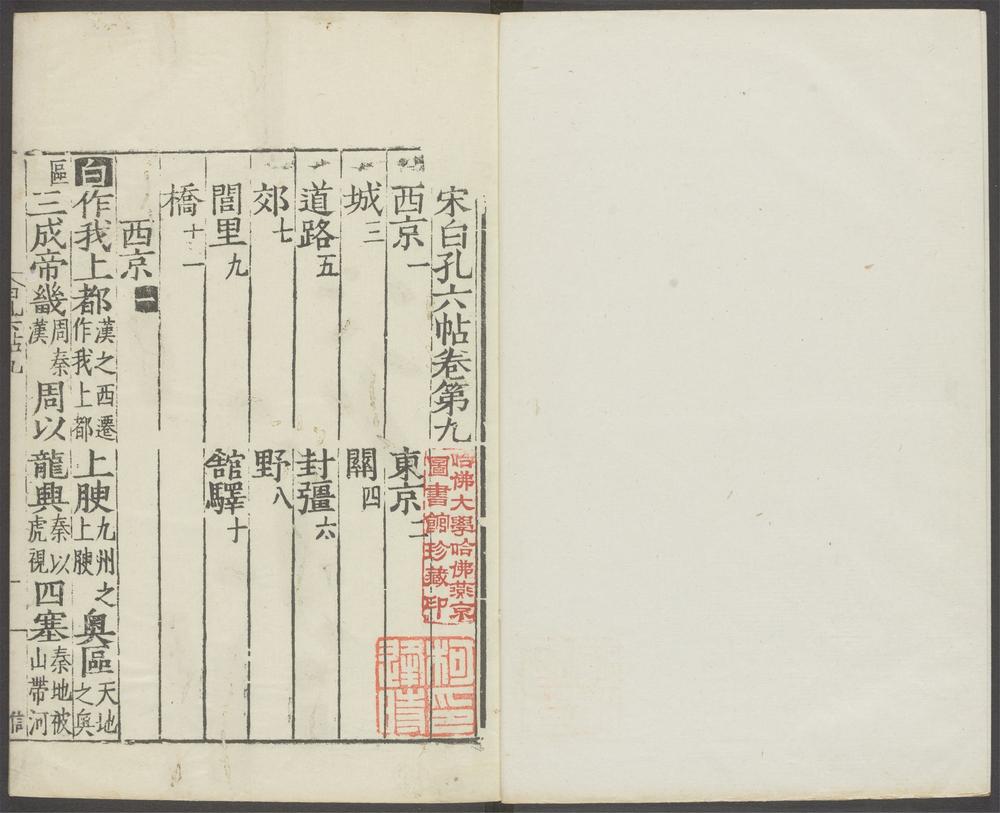 宋白孔六帖卷第九
西京一　東京二
城三　關四
道路五　封疆六
郊七　野八
閭里九　館驛十
橋十一
西京一
白作我上都漢之西遷作我上都上腴九州之上腴奧區天地之奧
區三成帝畿周秦漢周以龍興秦以虎視四塞秦地被山帶河
信
哈佛大學哈佛燕京
圖書館珍藏印